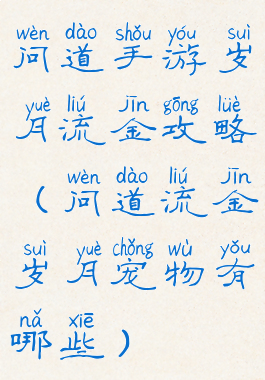 wèn dào shǒu yóu suì
问道手游岁
yuè liú jīn gōng lüè
月流金攻略
wèn dào liú jīn
（问道流金
suì yuè chǒng wù yǒu
岁月宠物有
nǎ xiē
哪些）